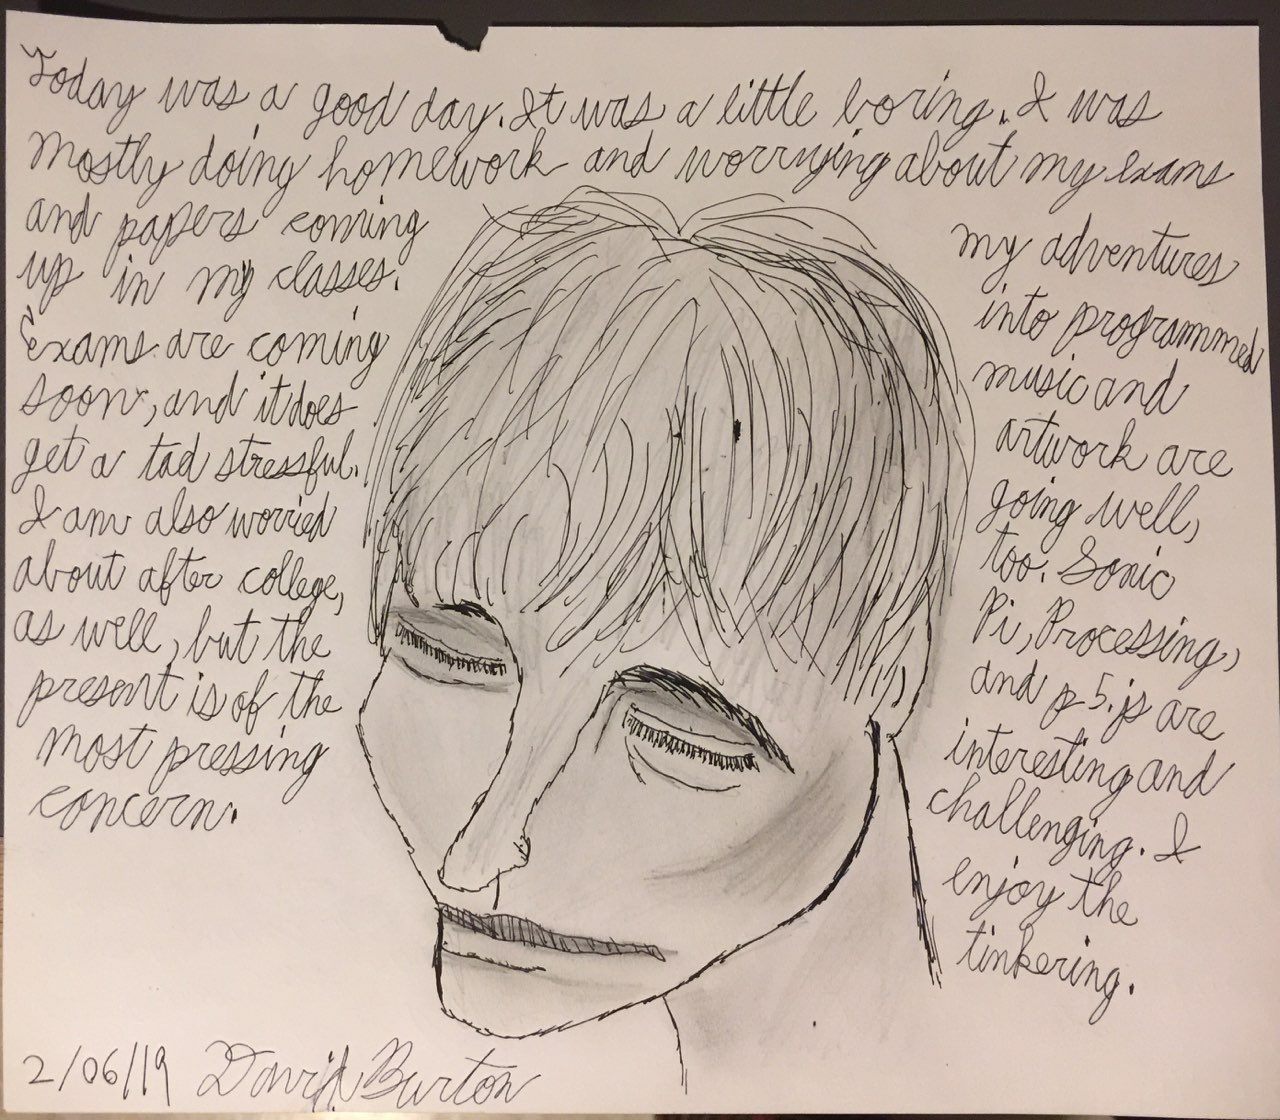 Today was a good day. It was a little boring. I was
mostly doing homework and worrying about my exams
and papers coming
up in my classes.
Exams are coming
soon, and it does
get a tad stressful.
I am also worried
about after college,
as well, but the
present is of the
most pressing
concern.
my adventures
into programmed
music and
artwork are
going well,
too. Sonic
Pi, Processing,
and p5.js are
interesting and
challenging. I
enjoy the
tinkering.
2/06/19 David Burton